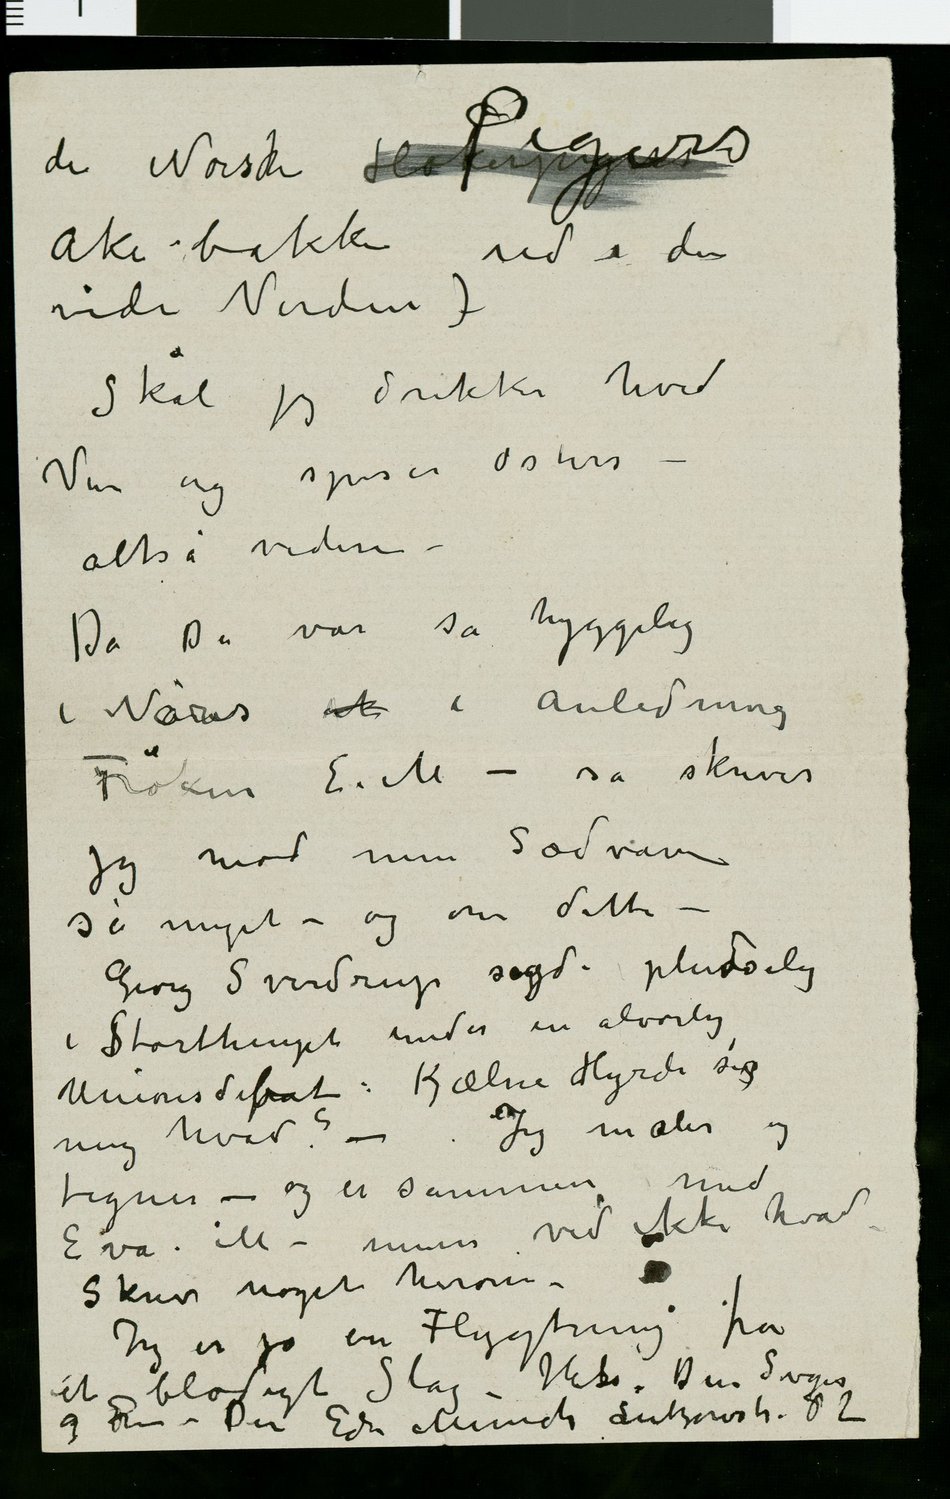 de Norske Pigers
Akebakke ned i den
vide Verden)
Skål jeg drikker hvid
Vin og spiser østers –
altså videre –
Da Du var så hyggelig
i Nårs i Anledning
Frøken E. M – så skriver
jeg mod min Sædvane
så meget – og om dette –
Georg Sverdrup sagde pludselig
i Storthinget under en alvorlig
Unionsdebat: Kjælne Hyrde sig
mig hvad? – Jeg maler og
tegner – og er sammen med
Eva. M – men ved ikke hvad –
Skriv noget herom –
Jeg er jo en Flygtning fra
et blodigt Slag – Hils. Din Svoger
og Din Edv Munch Lutzowstr. 82